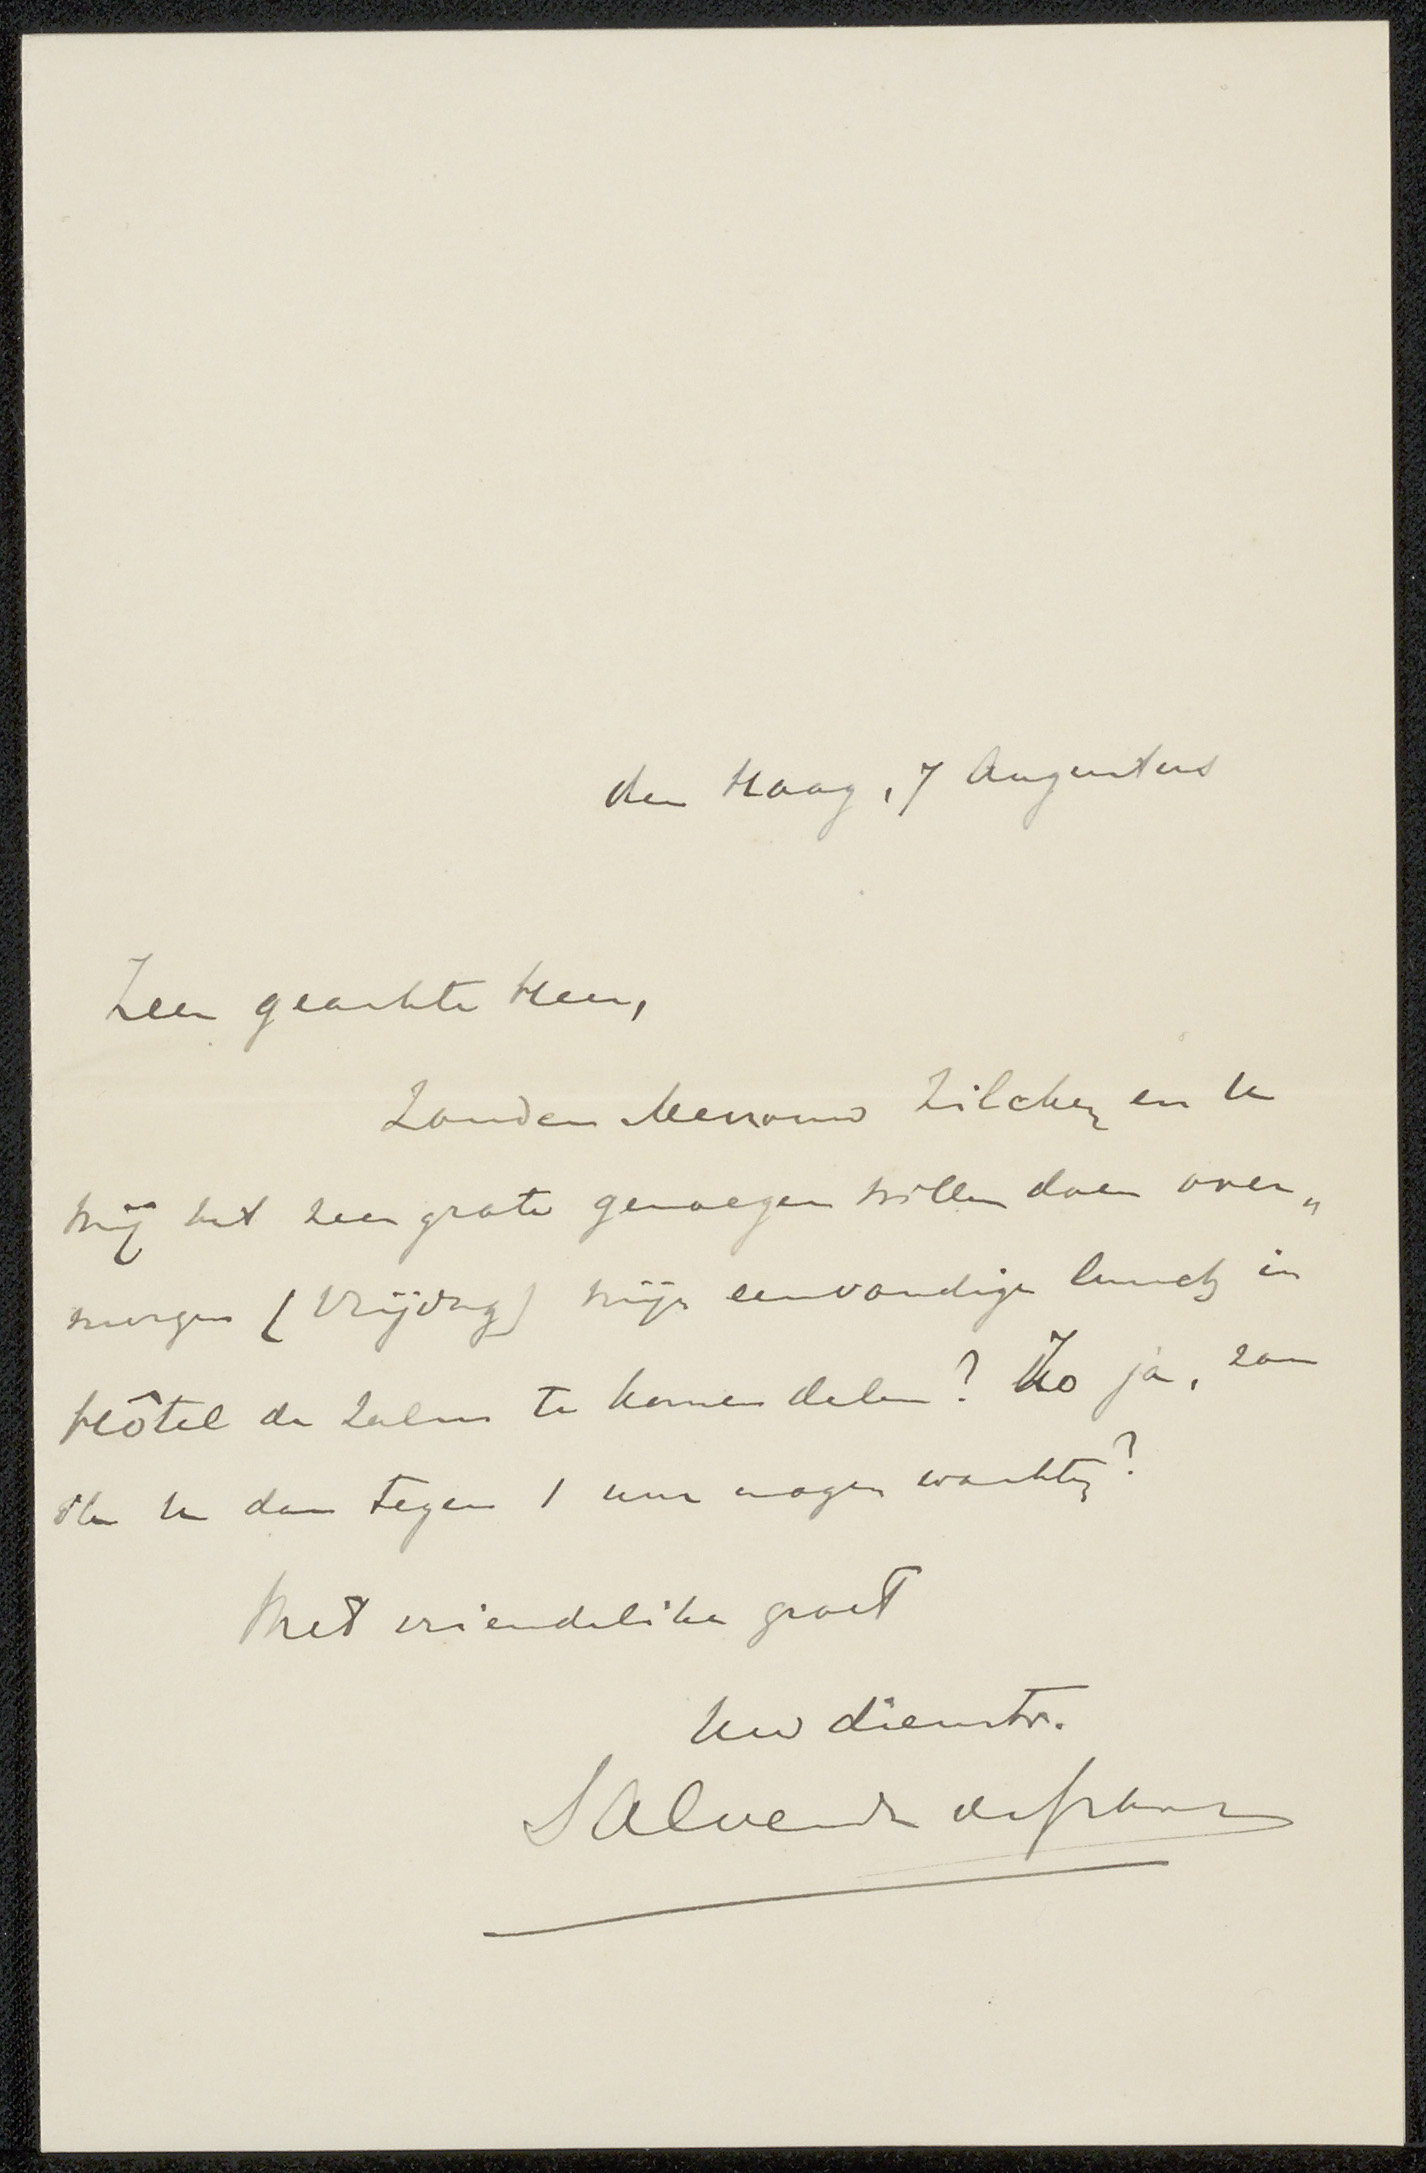 den Haag, 7 Augustus
Zeer geachte Heer,
Zouden Mevrouw Zilcken en U
mij het zeer groote genoegen willen doen over„
morgen (Vrijdag) mijn eenvoudige lunch in
Hôtel de Zalm te komen delen? Zo ja, zou
ik U dan tegen 1 uur mogen wachten?
Met vriendelike groet
Uw dienstw.